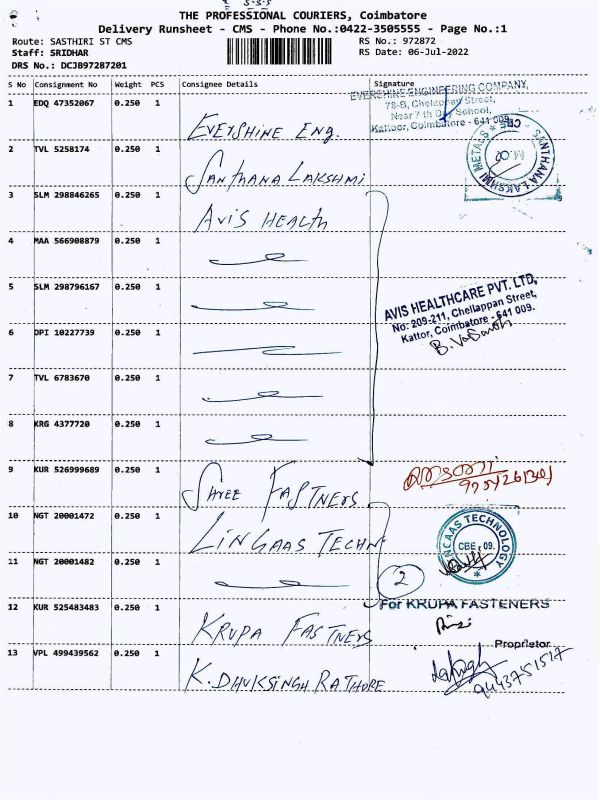 THE PROFESSIONAL COURIERS, Coimbatore
Delivery Runsheet - CMS - Phone No.:0422-3505555 - Page No.:1
Route: SASTHIRI ST CMS
RS No.: 972872
Staff: SRIDHAR
RS Date: 06-Jul-2022
DRS No.: DCJB97287201
S No Consignment No Weight PCS Consignee Details Signature
1 EDQ 47352067 0.250 1 EVERSHINE ENG.
EVERSHINE ENGINEERING COMPANY,
78-B, Chellappan Street,
Near 7 th Day School,
Kattoor, Coimbatore - 641 009.
2 TVL 5258174 0.250 1 SANTHANA LAKSHMI
SANTHANA LAKSHMI METALS * CBE *
3 SLM 298846265 0.250 1 AVIS HEALTH
4 MAA 566908879 0.250 1
5 SLM 298796167 0.250 1
AVIS HEALTHCARE PVT. LTD,
No: 209-211, Chellappan Street,
Kattor, Coimbatore - 641 009.
6 DPI 10227739 0.250 1
7 TVL 6783670 0.250 1
8 KRG 4377720 0.250 1
9 KUR 526999689 0.250 1 SHREE FASTNERS
10 NGT 20001472 0.250 1 LINGAAS TECHN
TECHNOLOGY
CBE - 09.
11 NGT 20001482 0.250 1
2
12 KUR 525483483 0.250 1 KRUPA FASTNERS
For KRUPA FASTENERS
Proprietor
13 VPL 499439562 0.250 1 K. DHUKSINGH RATHORE
9443751517